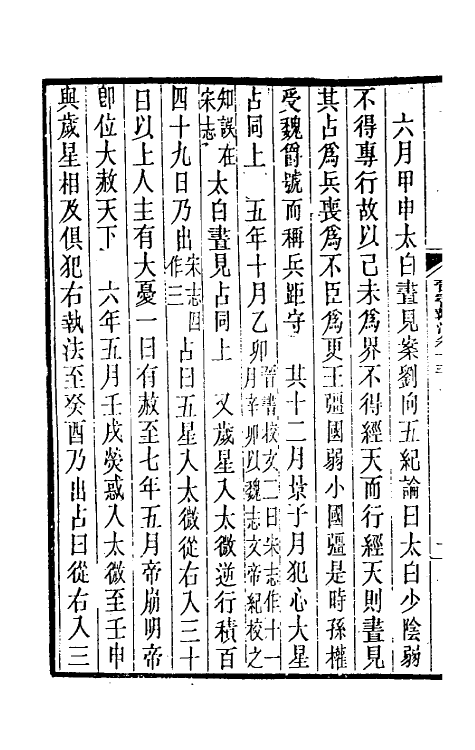 六月甲申太白晝見案劉向五紀論曰太白少陰弱
不得專行故以己未爲界不得經天而行經天則晝見
其占爲兵喪爲不臣爲更王彊國弱小國彊是時孫權
受魏爵號而稱兵距守　其十二月景子月犯心大星
占同上　五年十月乙卯晉書校文二曰宋志作十一月辛卯以魏志文帝紀校之
知誤在宋志太白晝見占同上　又歲星入太微逆行積百
四十九日乃出宋志四作三占曰五星入太微從右入三十
日以上人主有大憂一日有赦至七年五月帝崩明帝
即位大赦天下　六年五月壬戌熒惑入太微至壬申
與歲星相及俱犯右執法至癸酉乃出占曰從右入三